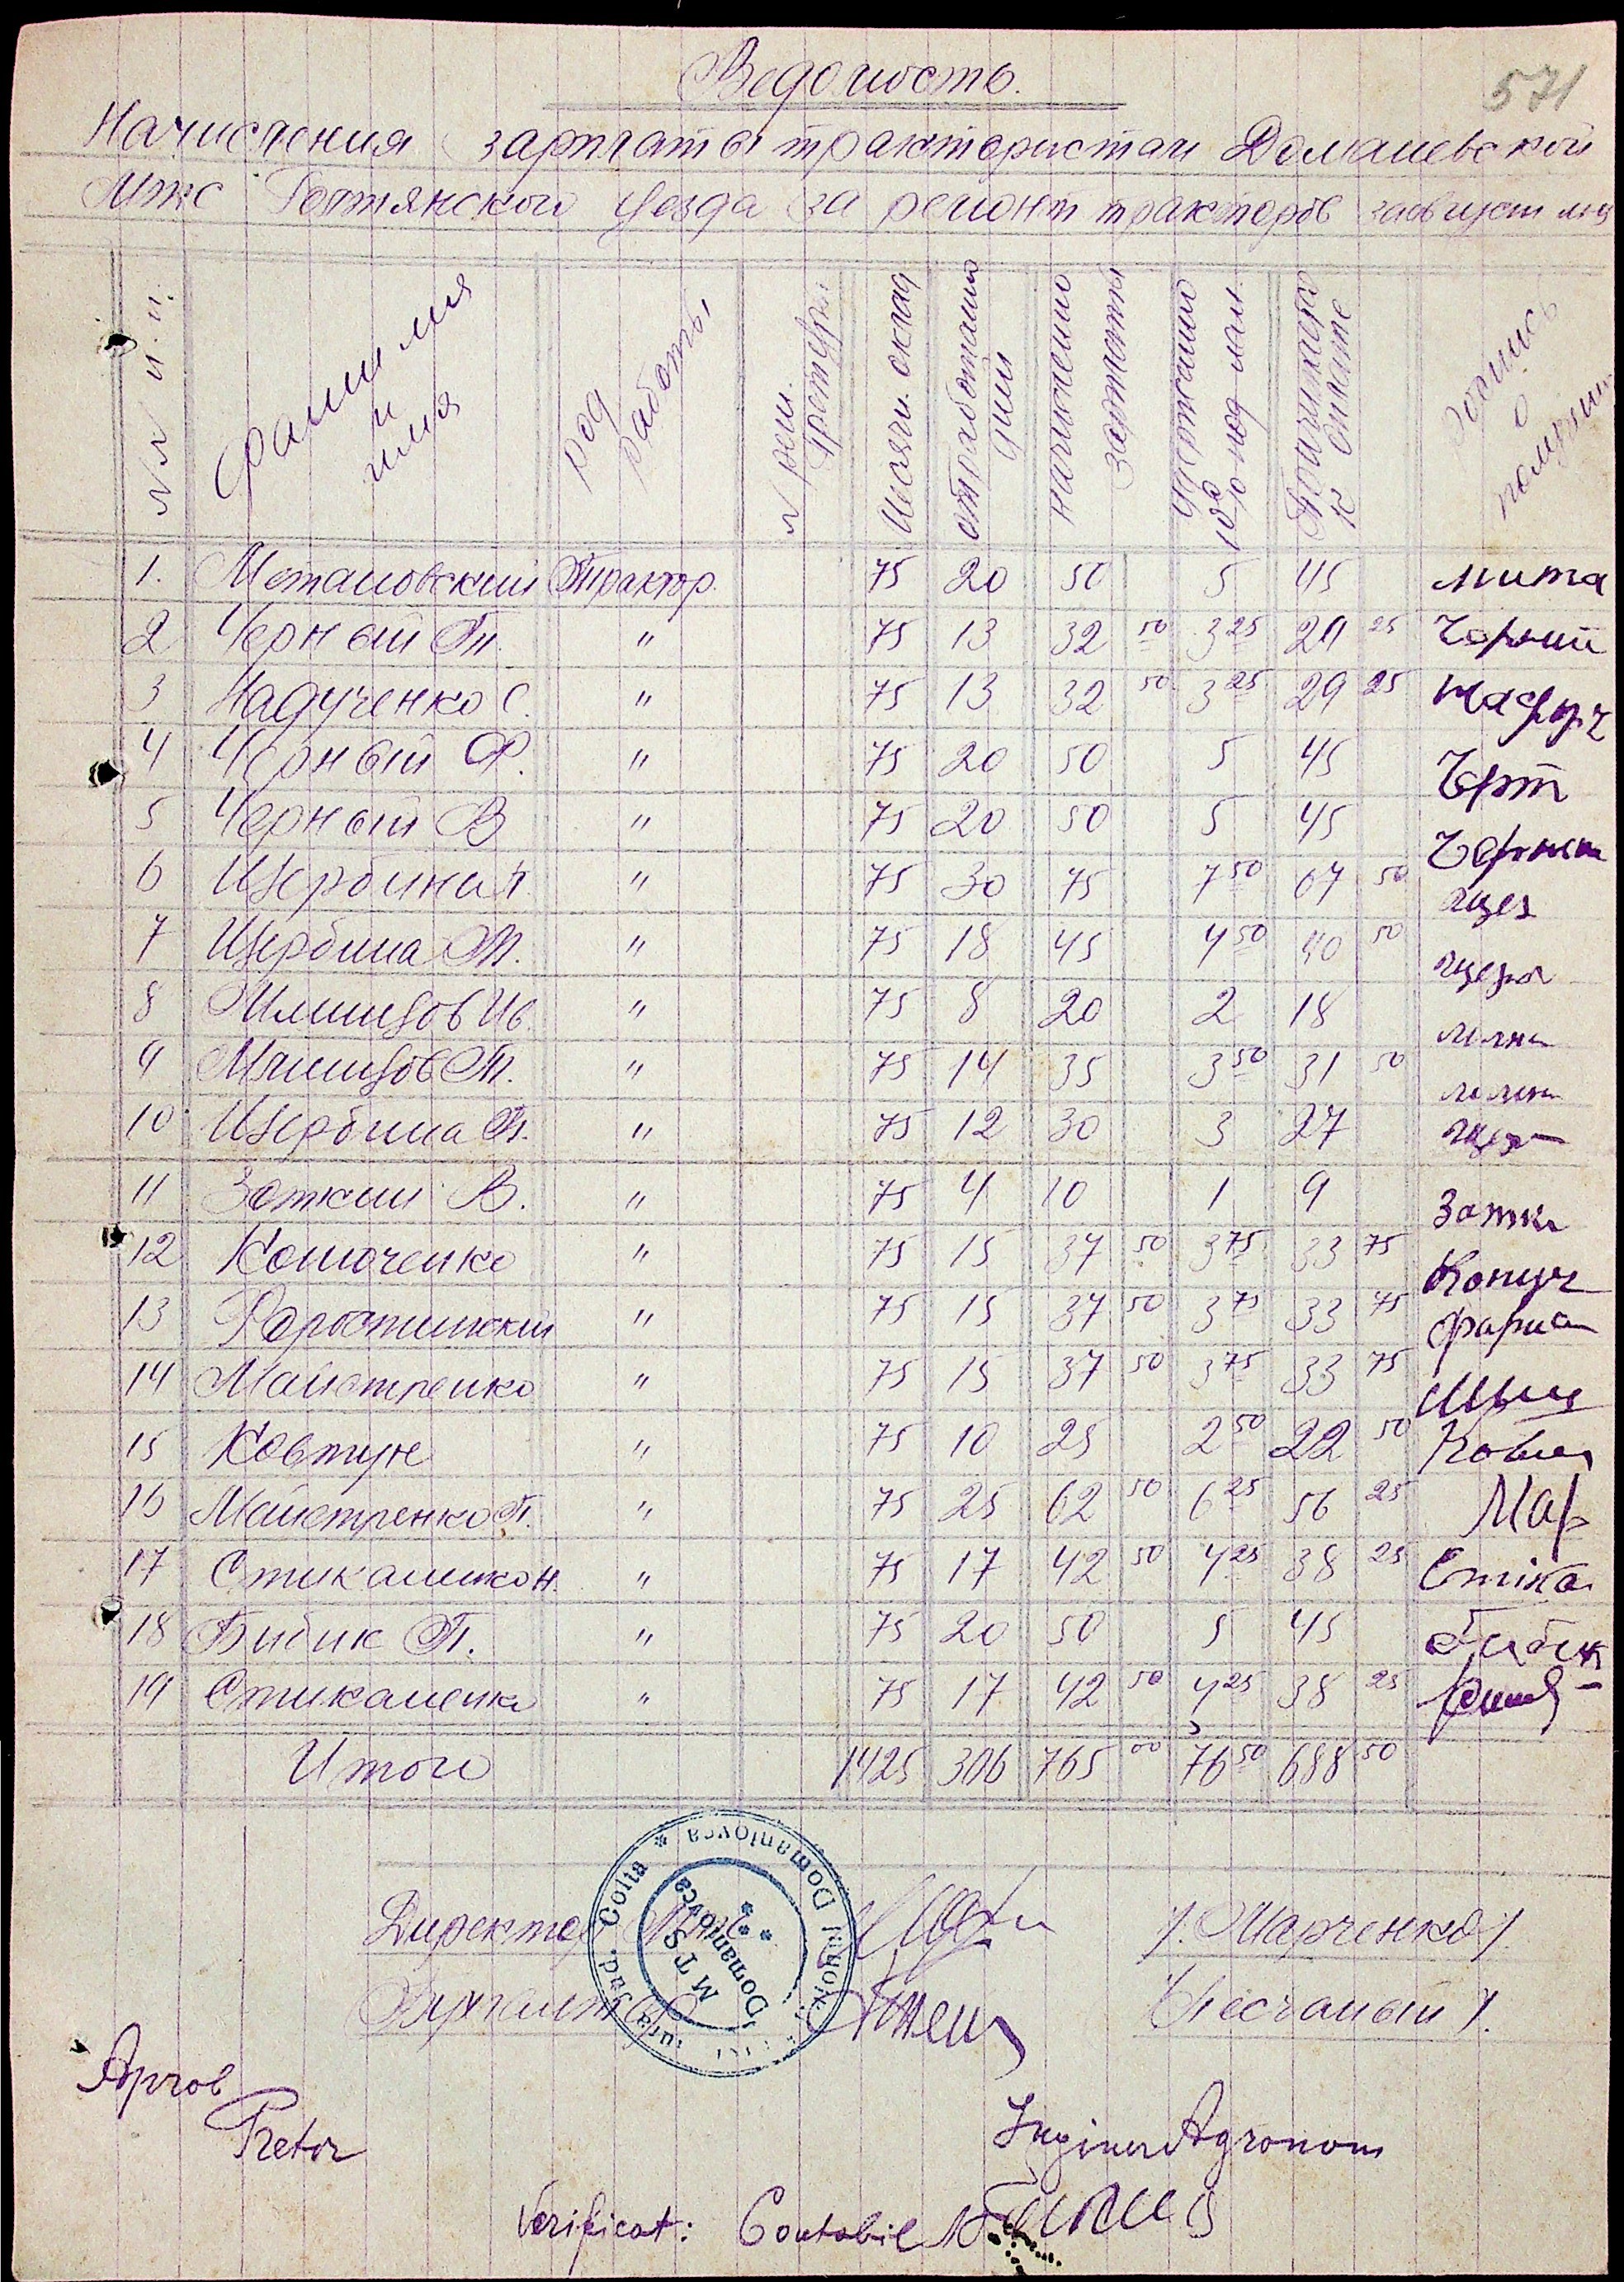 571
Ведомость.
Начисления зарплаты трактористам Доманевской
Мтс Голтянского уезда за ремонт тракторов за август м-ц
№№ п.п. Фамилия и имя Род работы № рем. Месячн. оклад отработанно дней начисленно зарплаты Удержанно 10% под нал. Причитается к оплате Роспись о получении
1. Метановский Трактор. 75 20 50 5 45 Мита
2 Черный П. " 75 13 32 50 3 25 29 25 Чорний
3 Надученко С. " 75 13 32 50 3 25 29 25 Надуч
4 Черный Ф. " 75 20 50 5 45
5 Черный В " 75 20 50 5 45
6 Щербина " 75 30 75 7 50 67 50
7 Щербина М. " 75 18 45 4 50 40 50
8 Ив " 75 8 20 2 18
9 М. " 75 14 35 3 50 31 50
10 Щербина П. " 75 12 30 3 27
11 Заткин В. " 75 4 10 1 9 Затки
12 " 75 15 37 50 3 75 33 75 Конуч
13 " 75 15 37 50 3 75 33 75
14 Майстренко " 75 15 37 50 3 75 33 75
15 Ковтун " 75 10 25 2 50 22 50
16 Майстренко П. " 75 25 62 50 6 25 56 25 Мар
17 Стикаленко Н. " 75 17 42 50 4 25 38 25 Стіка
18 Бибик П. " 75 20 50 5 45 Бибик
19 Стикаленка " 75 17 42 50 4 25 38 25
Итого 1425 306 765 00 76 50 688 50
Jud. Golta * Raionul Domaniovca *
MTS Domaniovca
Директор Мтс /Марченко/.
Бухгалтер /Песчаный/.
Aprob
Pretor
Inginer Agronom
Verificat: Contabil